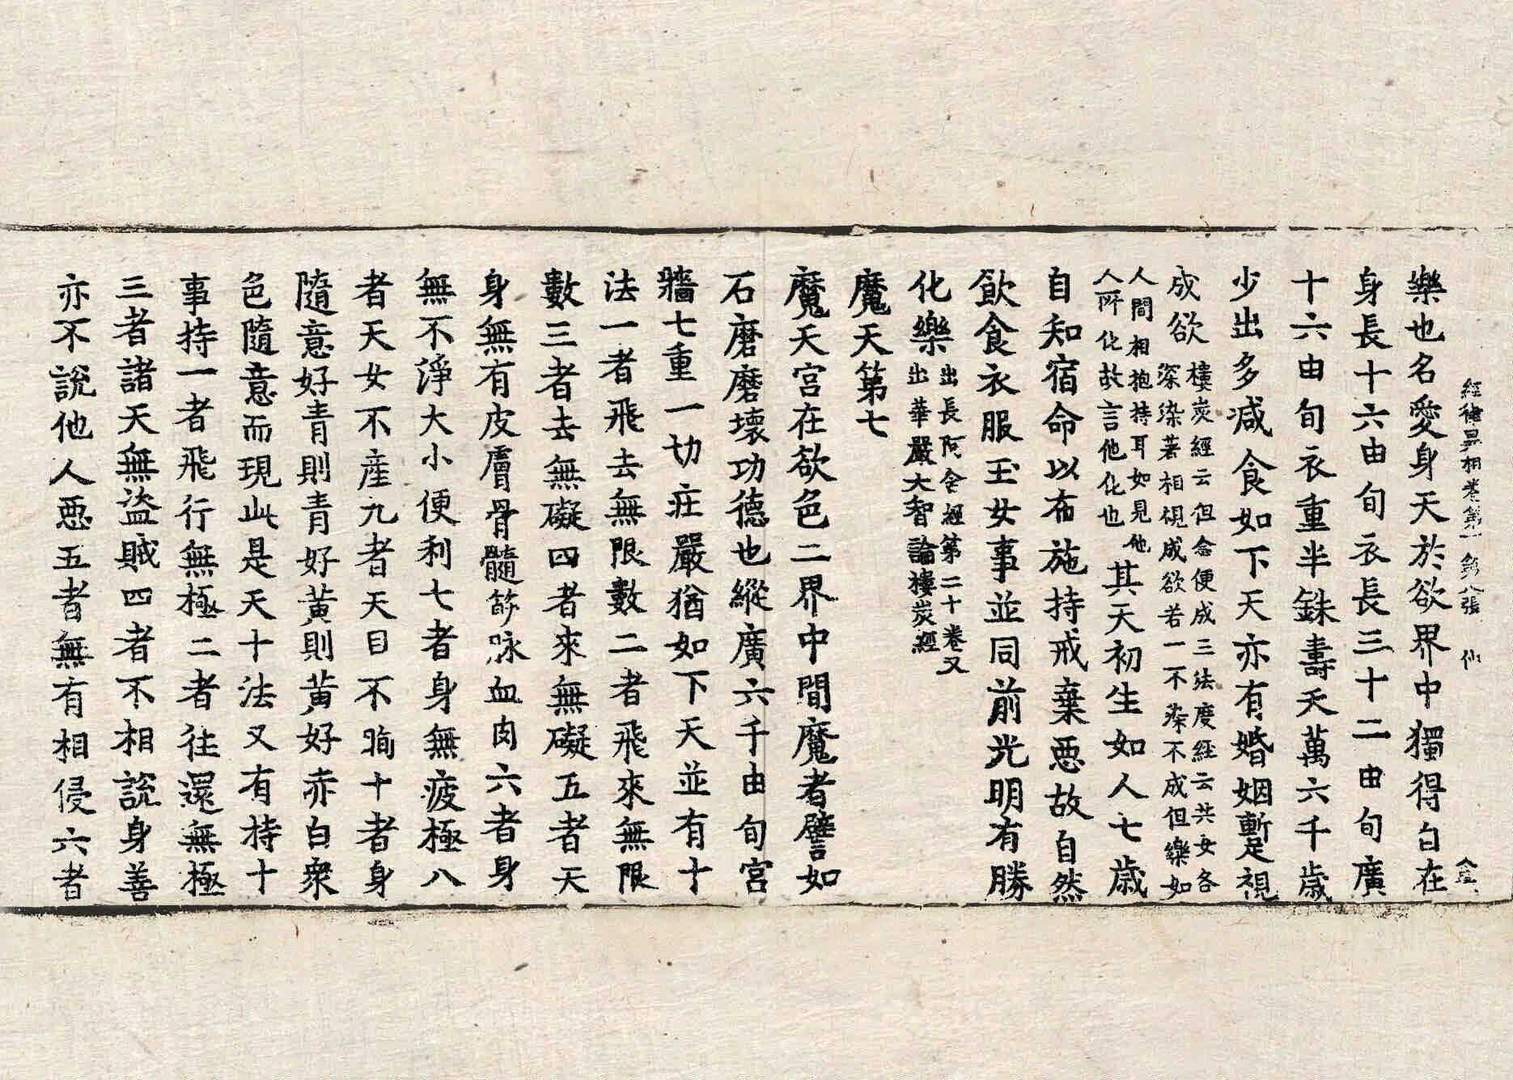 經律異相卷第一 第八張 仙
樂也名愛身天於欲界中獨得自在
身長十六由旬衣長三十二由旬廣
十六由旬衣重半銖壽天萬六千歲
少出多減食如下天亦有婚姻蹔視
成欲樓炭經云但念便成三法度經云共女各
深染著相視成欲若一不染不成但樂如
人間相抱持耳如見他
人所化故言他化也其天初生如人七歲
自知宿命以布施持戒棄惡故自然
飲食衣服玉女事並同前光明有勝
化樂出長阿含經第二十卷又
出華嚴大智論樓炭經
魔天第七
魔天宮在欲色二界中間魔者譬如
石磨磨壞功德也縱廣六千由旬宮
牆七重一切庄嚴猶如下天並有十
法一者飛去無限數二者飛來無限
數三者去無礙四者來無礙五者天
身無有皮膚骨髓筋脉血肉六者身
無不淨大小便利七者身無疲極八
者天女不産九者天目不眴十者身
隨意好青則青好黃則黃好赤白衆
色隨意而現此是天十法又有持十
事持一者飛行無極二者往還無極
三者諸天無盜賊四者不相說身善
亦不說他人惡五者無有相侵六者